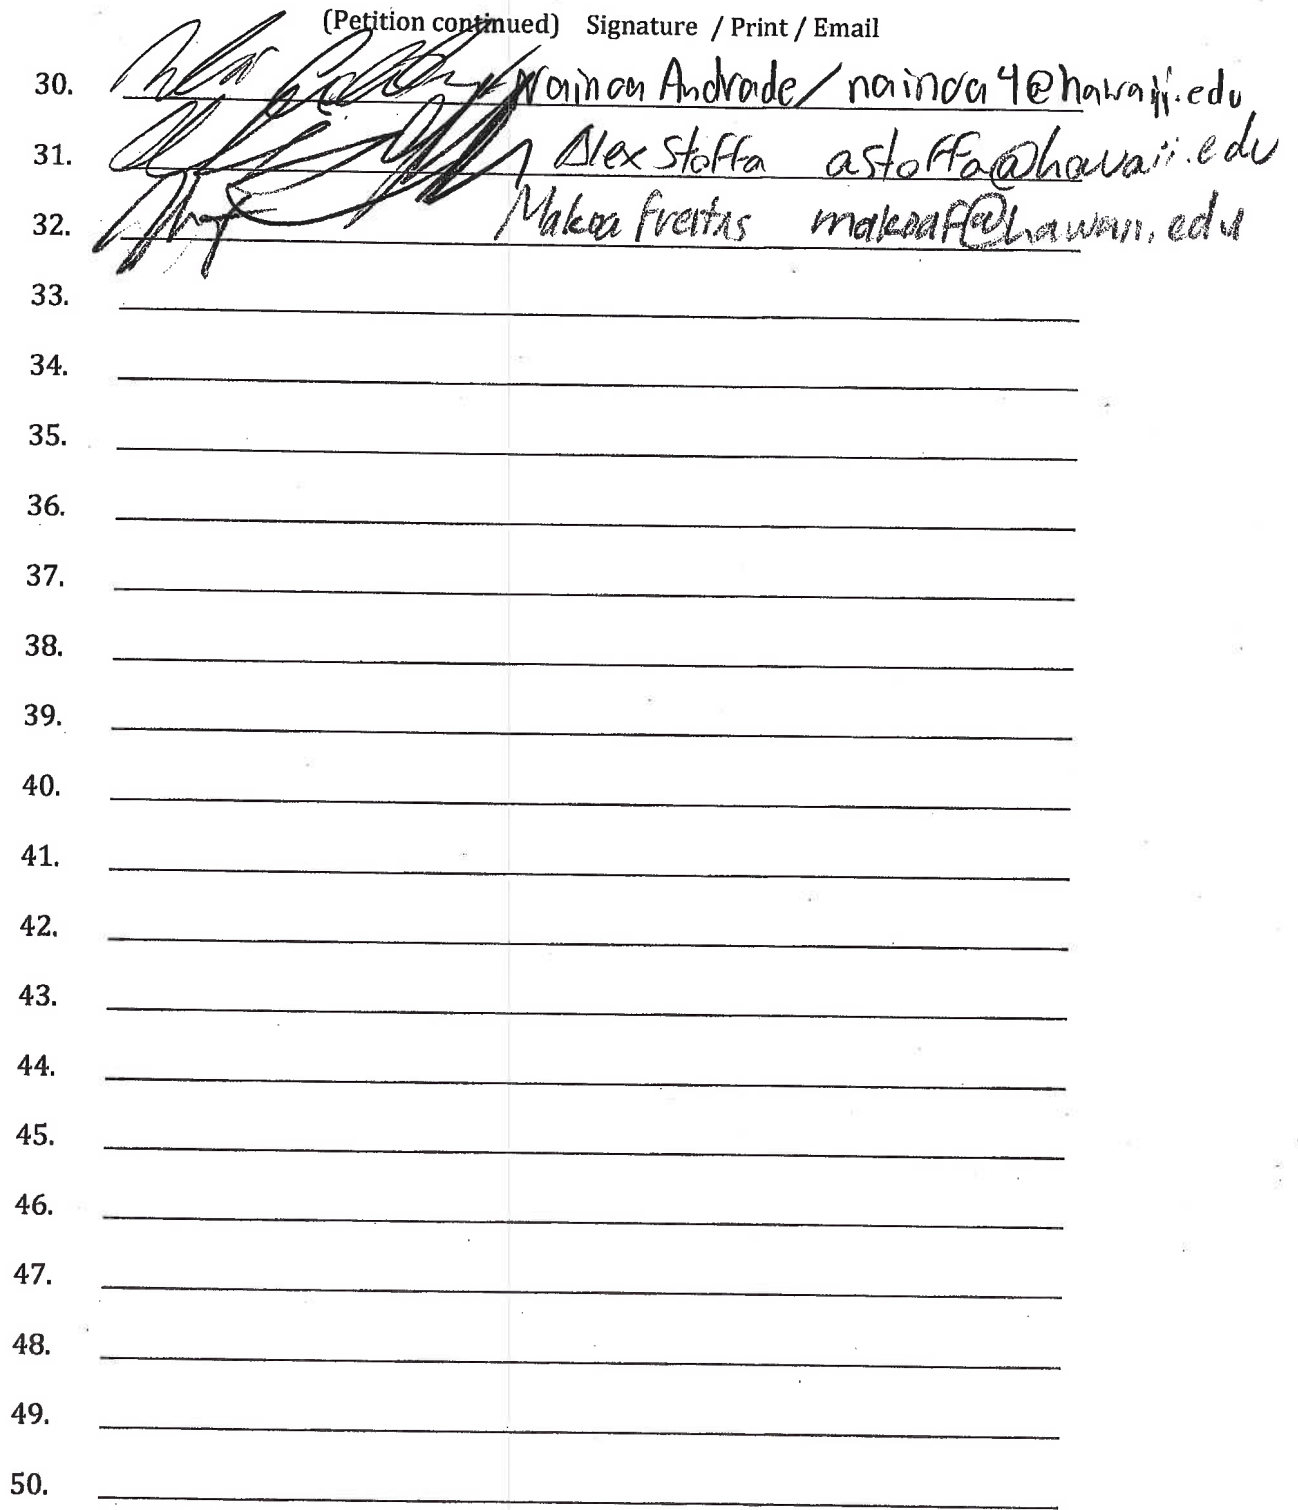 (Petition continued) Signature / Print / Email
30. Nainoa Andrade / nainoa4@hawaii.edu
31. Alex Stoffa astoffa@hawaii.edu
32. Makoa Freitas makoaf@hawaii.edu
33.
34.
35.
36.
37.
38.
39.
40.
41.
42.
43.
44.
45.
46.
47.
48.
49.
50.